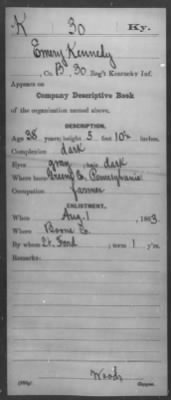 K 30 Ky.
Emery Kennedy
, Co. B, 30 Reg't Kentucky Inf.
Appears on
Company Descriptive Book
of the organization named above.
DESCRIPTION.
Age 38 years; height 5 feet 10½ inches.
Complexion dark
Eyes gray, hair dark
Where born Greene Co. Pennsylvania
Occupation farmer
ENLISTMENT.
When Aug. 1, 1863
Where Boone Co.
By whom Lt. Ford; term 1 y'rs.
Remarks:
Woods
Copyist.